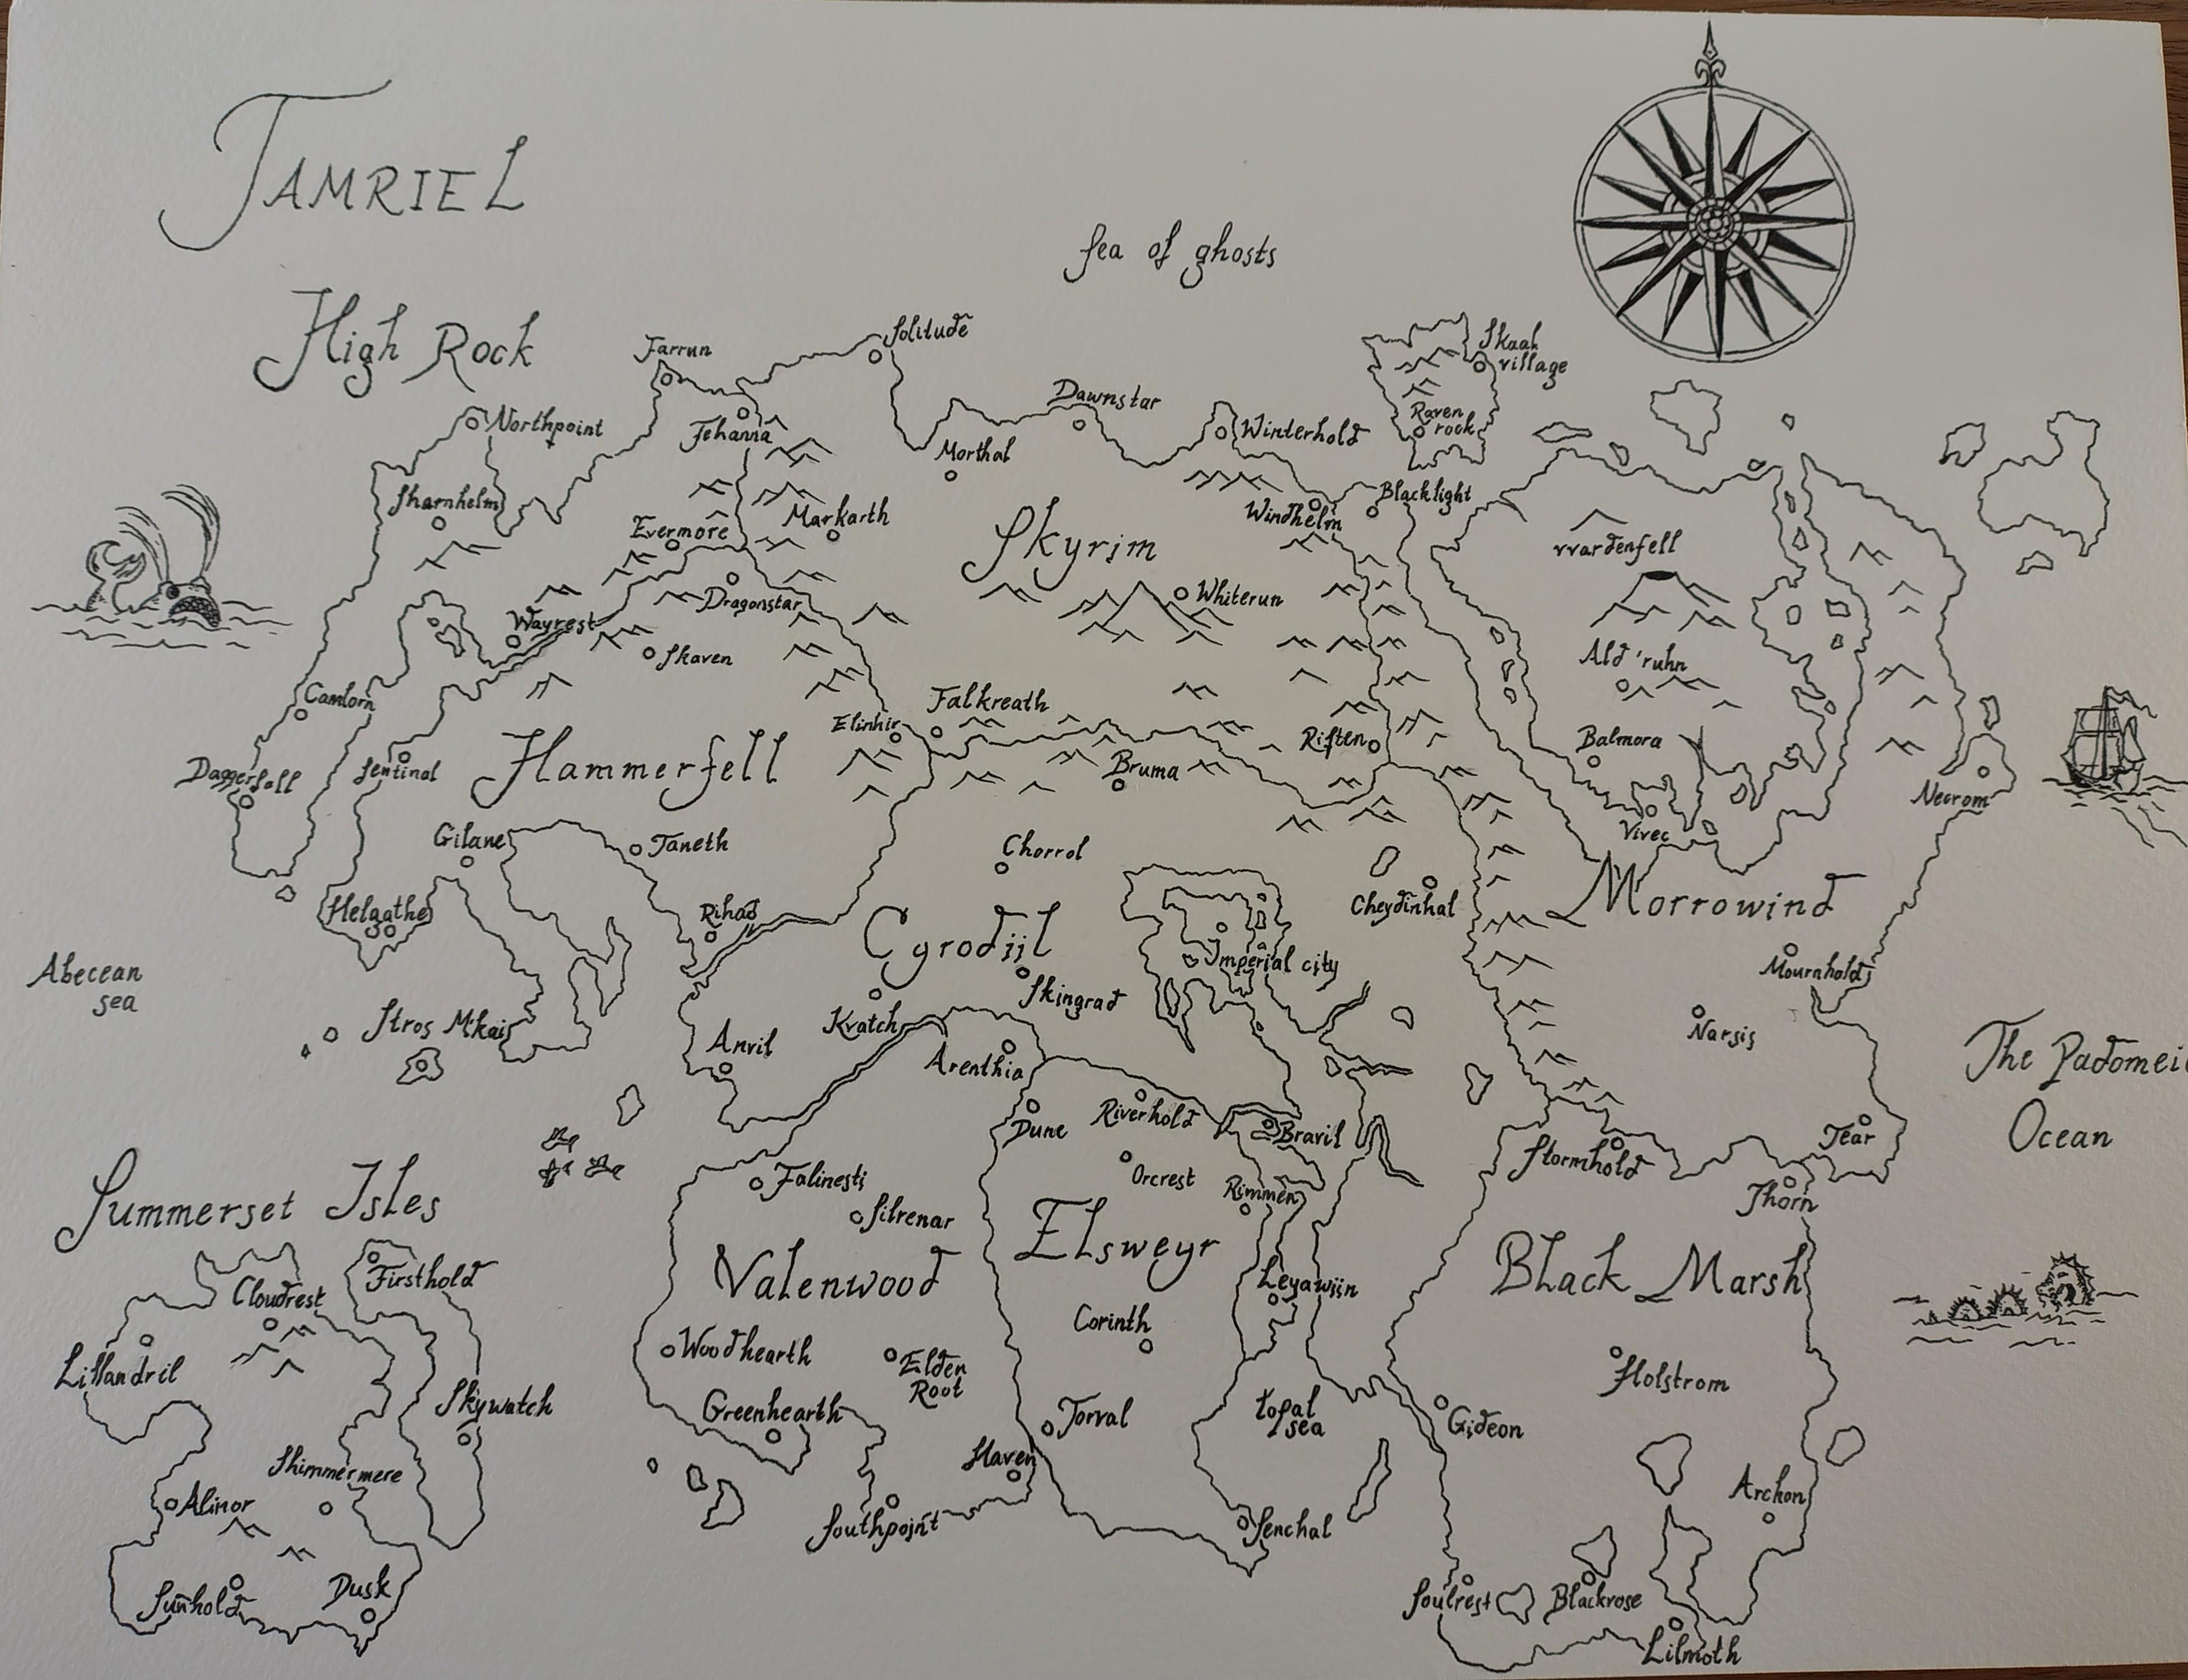 TAMRIEL
Sea of ghosts
High Rock
Farrun
Solitude
Skaal
village
Northpoint
Jehanna
Dawnstar
Morthal
Winterhold
Raven
rock
Sharnhelm
Evermore
Markarth
Skyrim
Windhelm
Blacklight
vvardenfell
Wayrest
Dragonstar
Whiterun
Skaven
Ald'ruhn
Camlorn
Falkreath
Elinhir
Riften
Balmora
Daggerfall
Sentinal
Hammerfell
Bruma
Necrom
Gilane
Taneth
Chorrol
Vivec
Helgathe
Rihad
Cyrodiil
Cheydinhal
Morrowind
Abecean
sea
Imperial city
Mournhold
Skingrad
Stros M'kai
Kvatch
Anvil
Arenthia
Narsis
The Padomei
Ocean
Dune
Riverhold
Bravil
Stormhold
Tear
Falinesti
Orcrest
Rimmen
Thorn
Summerset Isles
Silrenar
Elsweyr
Valenwood
Black Marsh
Firsthold
Cloudrest
Leyawiin
Corinth
Lillandril
Woodhearth
Elden
Root
Holstrom
Skywatch
Greenhearth
Torval
topal
sea
Gideon
Shimmermere
Haven
Alinor
Archon
Southpoint
Senchal
Sunhold
Dusk
Soulrest
Blackrose
Lilmoth